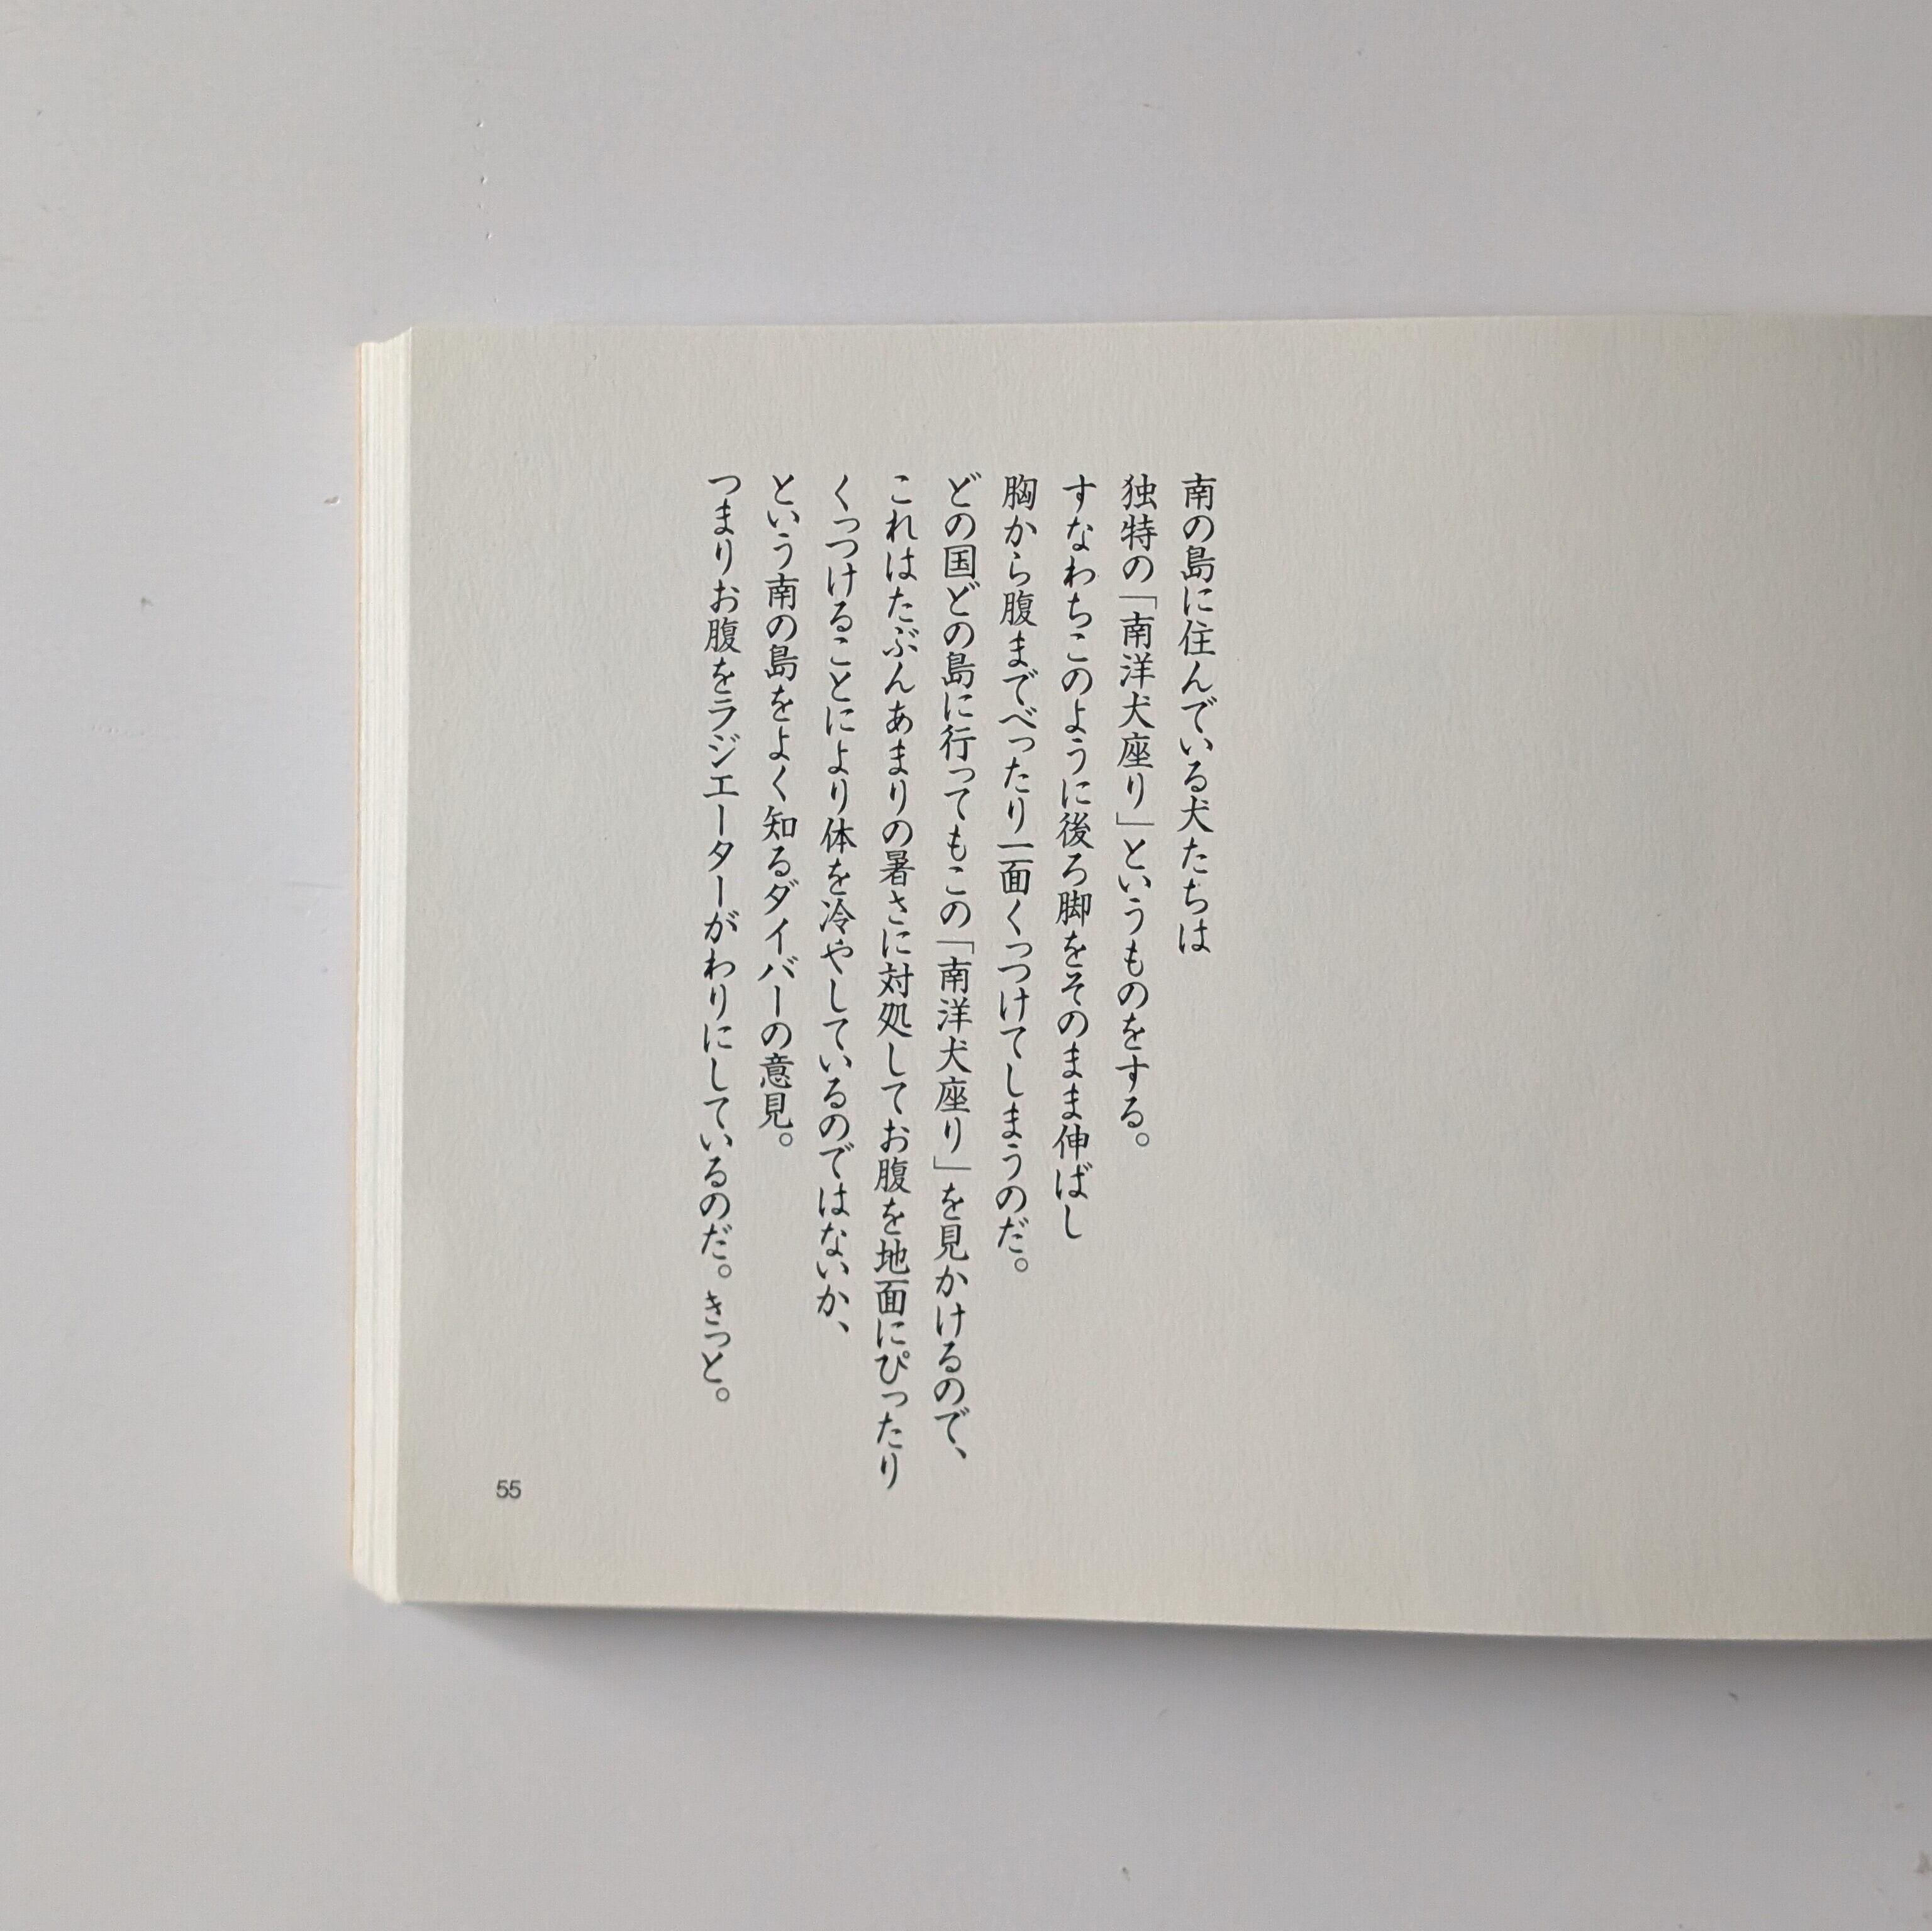 南の島に住んでいる犬たちは
独特の「南洋犬座り」というものをする。
すなわちこのように後ろ脚をそのまま伸ばし
胸から腹までべったり一面くっつけてしまうのだ。
どの国どの島に行ってもこの「南洋犬座り」を見かけるので、
これはたぶんあまりの暑さに対処してお腹を地面にぴったり
くっつけることにより体を冷やしているのではないか、
という南の島をよく知るダイバーの意見。
つまりお腹をラジエーターがわりにしているのだ。きっと。
55